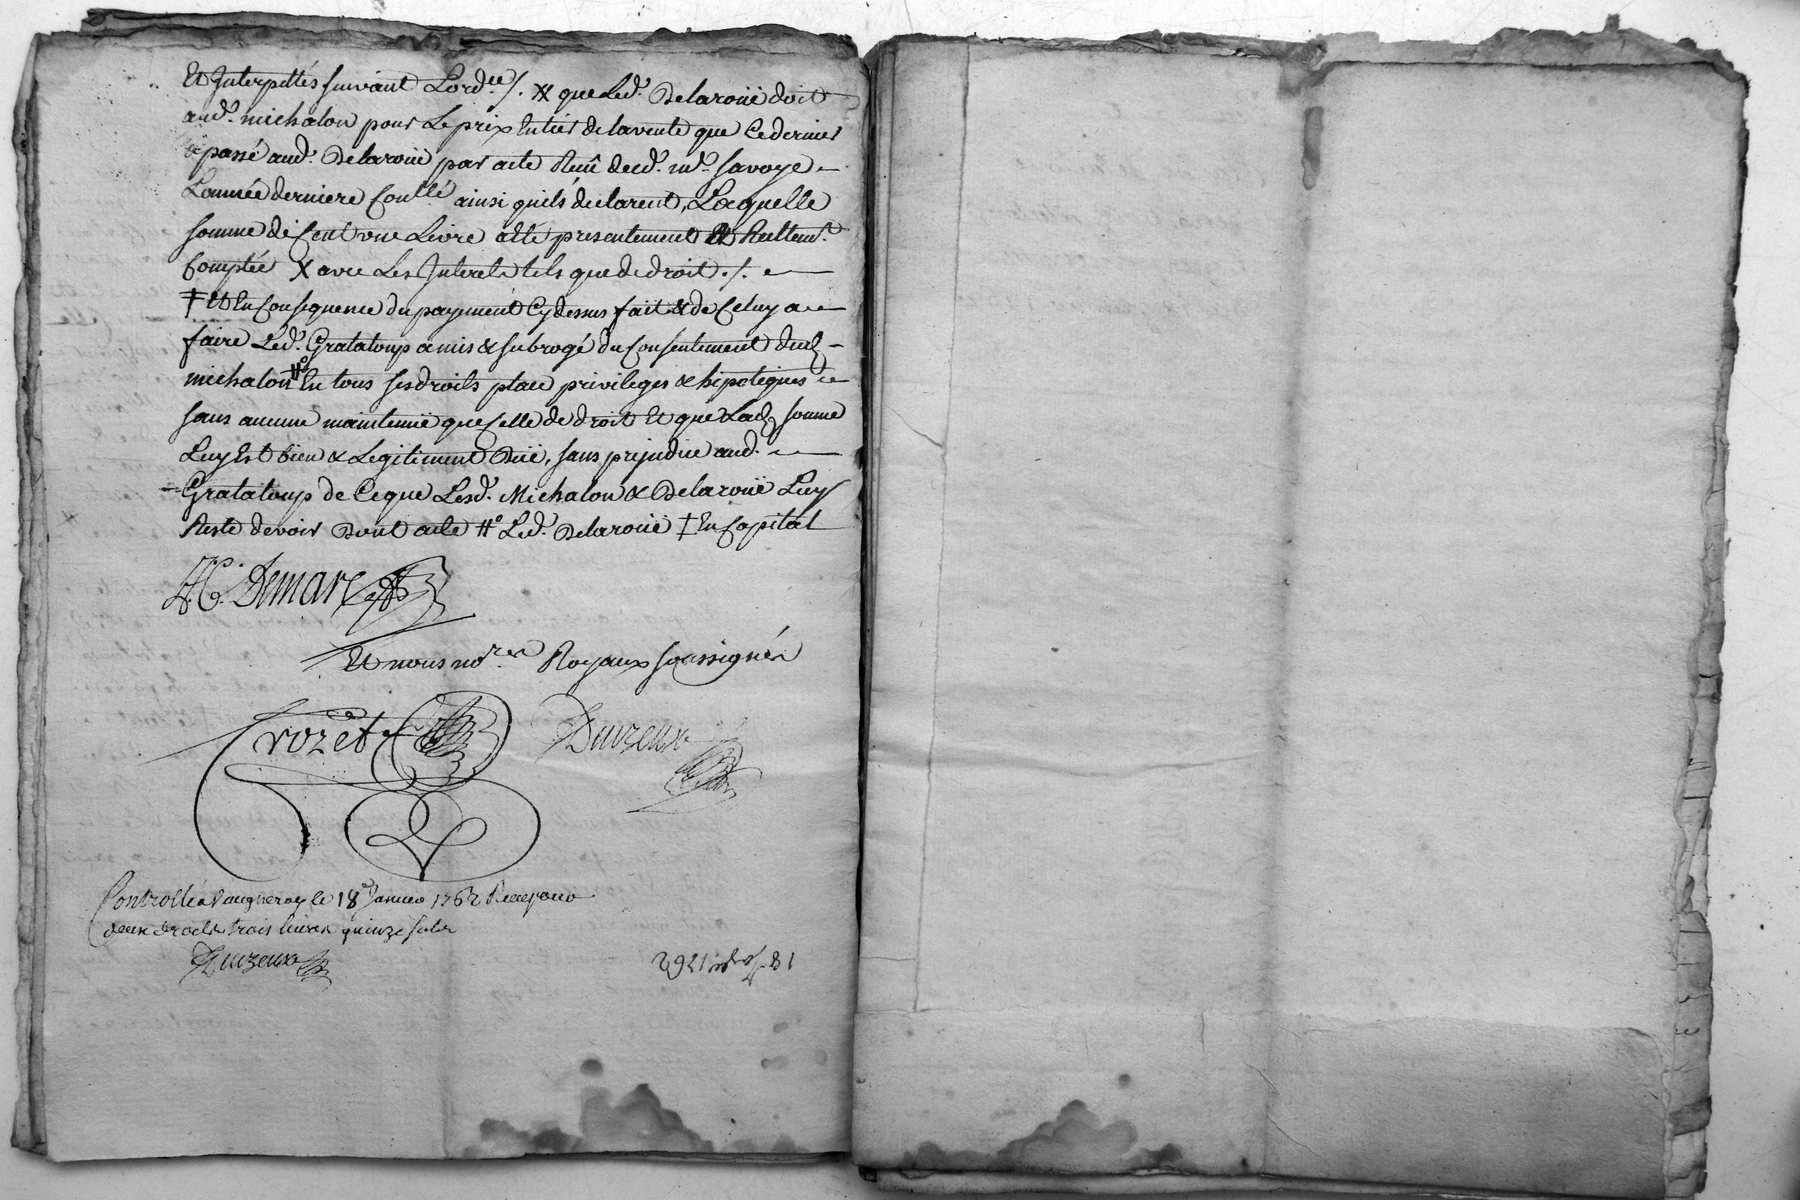 Et Interpellés suivant Lord.ce /. X que Led. Delaroüe doit
aud. michalon pour Le prix Entier de la vente que Ce dernier
a passé aud. Delaroüe par acte Reçû dud. m.e Savoye
L'année derniere Conllé ainsi quils déclarent, Laquelle
somme de Cent une Livre a été présentement & Réellem.t
Comptée X avec Les Interets tels que de droit ./.
‡ Et En Consequence du payement Cy dessus fait & de Celuy a
faire Led. Grataloup a mis & subrogé du Consentement dud.
michalon #° En tous ses droits place privileges & hipoteques
sans aucune maintenüe que Celle de droit Et que Lad. somme
Luy Est bien & Legitiment Düe, sans prejudice aud.
Grataloup de Ce que Lesd. Michalon & Delaroüe Luy
Reste devoir Dont acte #° Led. Delaroüe ‡ En Capital
Demare
Et nous no.res Royaux soussignés
Crozet Duvzeux
Controllé a Vaugneray le 18e Janvier 1762 Reçu pour
deux droits trois livres quinze sols
Duvzeux